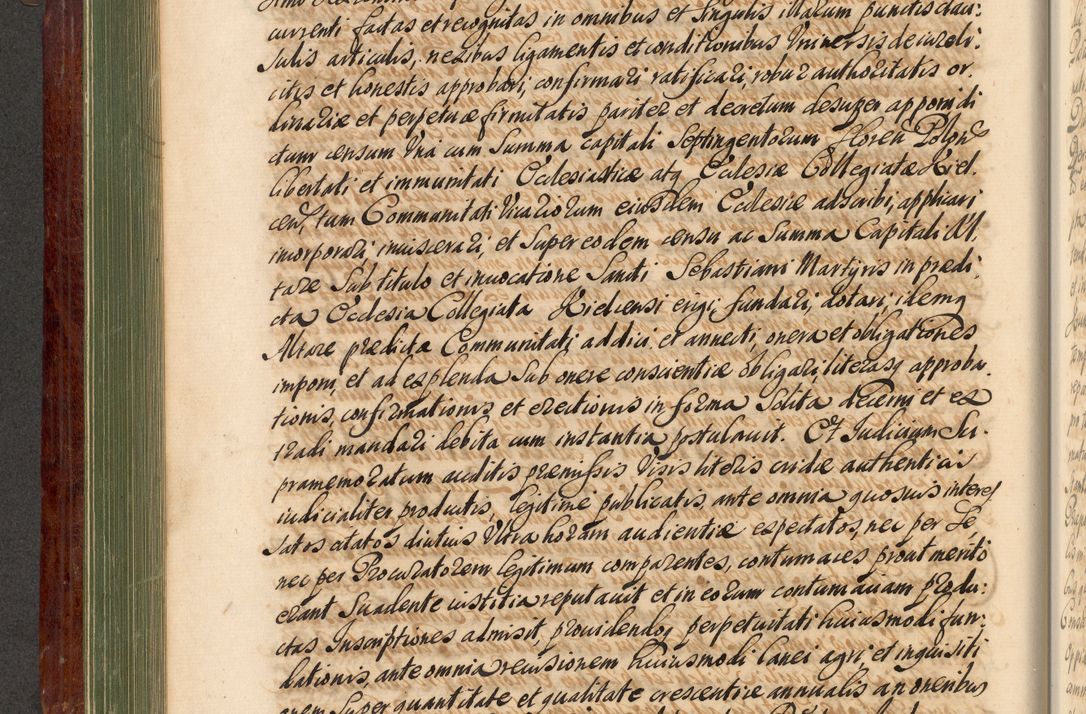 currenti factas et recognitas in omnibus et singulis illarum punctis clau:
sulis articulis, nexibus ligamentis et conditionibus Universis de iure li:
citis et honestis approbari, confirmari ratificari, robur authoritatis or
dinariæ et perpetuæ firmitatis pariter et decretum desuper apponi di
ctum censum Una cum Summa capitali Septingentorum Floren Polon
libertati et immunitati Ecclesiasticæ atq Ecclesiæ Collegiatæ Kiel.
cen, tum Communitati Vicariorum eiusdem Ecclesiæ adscribi, applicari
incorporari inviscerari, et Super eodem censu ac Summa Capitali Al
tare Sub titulo et invocatione Sancti Sebastiani Martyris in prædi:
cta Ecclesia Collegiata Kielcensi erigi, fundari, dotari, idemq
Altare prædicta Communitati addici, et annecti, onera et obligationes
imponi, et ad explenda Sub onere conscientiæ obligari, literasq approba
tionis, confirmationis et erectionis in forma Solita decerni et ex
tradi mandari debita cum instantia postulavit. Et Judicium Su.
pramemoratum auditis præmissis Visis literis evidæ authenticis
iudicialiter productis, legitime publicatis, ante omnia quosvis interes
satos citatos diutius Ultra horam audientiæ expectatos, nec per Se,
nec per Procuratorem legitimum comparentes, contumaces prout merito
erant Suadente iustitia reputavit et in eorum contumaciam produ:
ctas Inscriptiones admisit, providendoq perpetuitati huiusmodi fun,
dationis, ante omnia revisionem huiusmodi lanei agri, et inquisiti
onem Super quantitate et qualitate crescentiæ annualis an oneribus